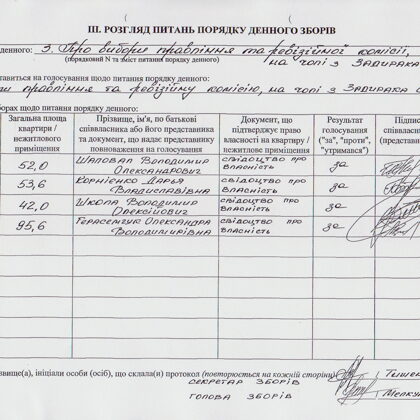 III. РОЗГЛЯД ПИТАНЬ ПОРЯДКУ ДЕННОГО ЗБОРІВ
денного: 3. Про вибори правління та ревізійної комісії,
(порядковий N та зміст питання порядку денного)
на чолі з Задирака
тавиться на голосування щодо питання порядку денного:
ти правління та ревізійну комісію, на чолі з Задирака О
борах щодо питання порядку денного:
Загальна площа квартири / нежитлового приміщення
Прізвище, ім'я, по батькові співвласника або його представника та документ, що надає представнику повноваження на голосування
Документ, що підтверджує право власності на квартиру / нежитлове приміщення
Результат голосування ("за", "проти", "утримався")
Підпис співвла (представ
52,0 Шаповал Володимир Олександрович свідоцтво про власність за
53,6 Корнієнко Дарья Владиславівна свідоцтво про власність за
42,0 Школа Володимир Олексійович свідоцтво про власність за
95,6 Герасемчук Олександра Володимирівна свідоцтво про власність за
звище(а), ініціали особи (осіб), що склала(и) протокол (повторюється на кожній сторінці)
секретар зборів
голова зборів